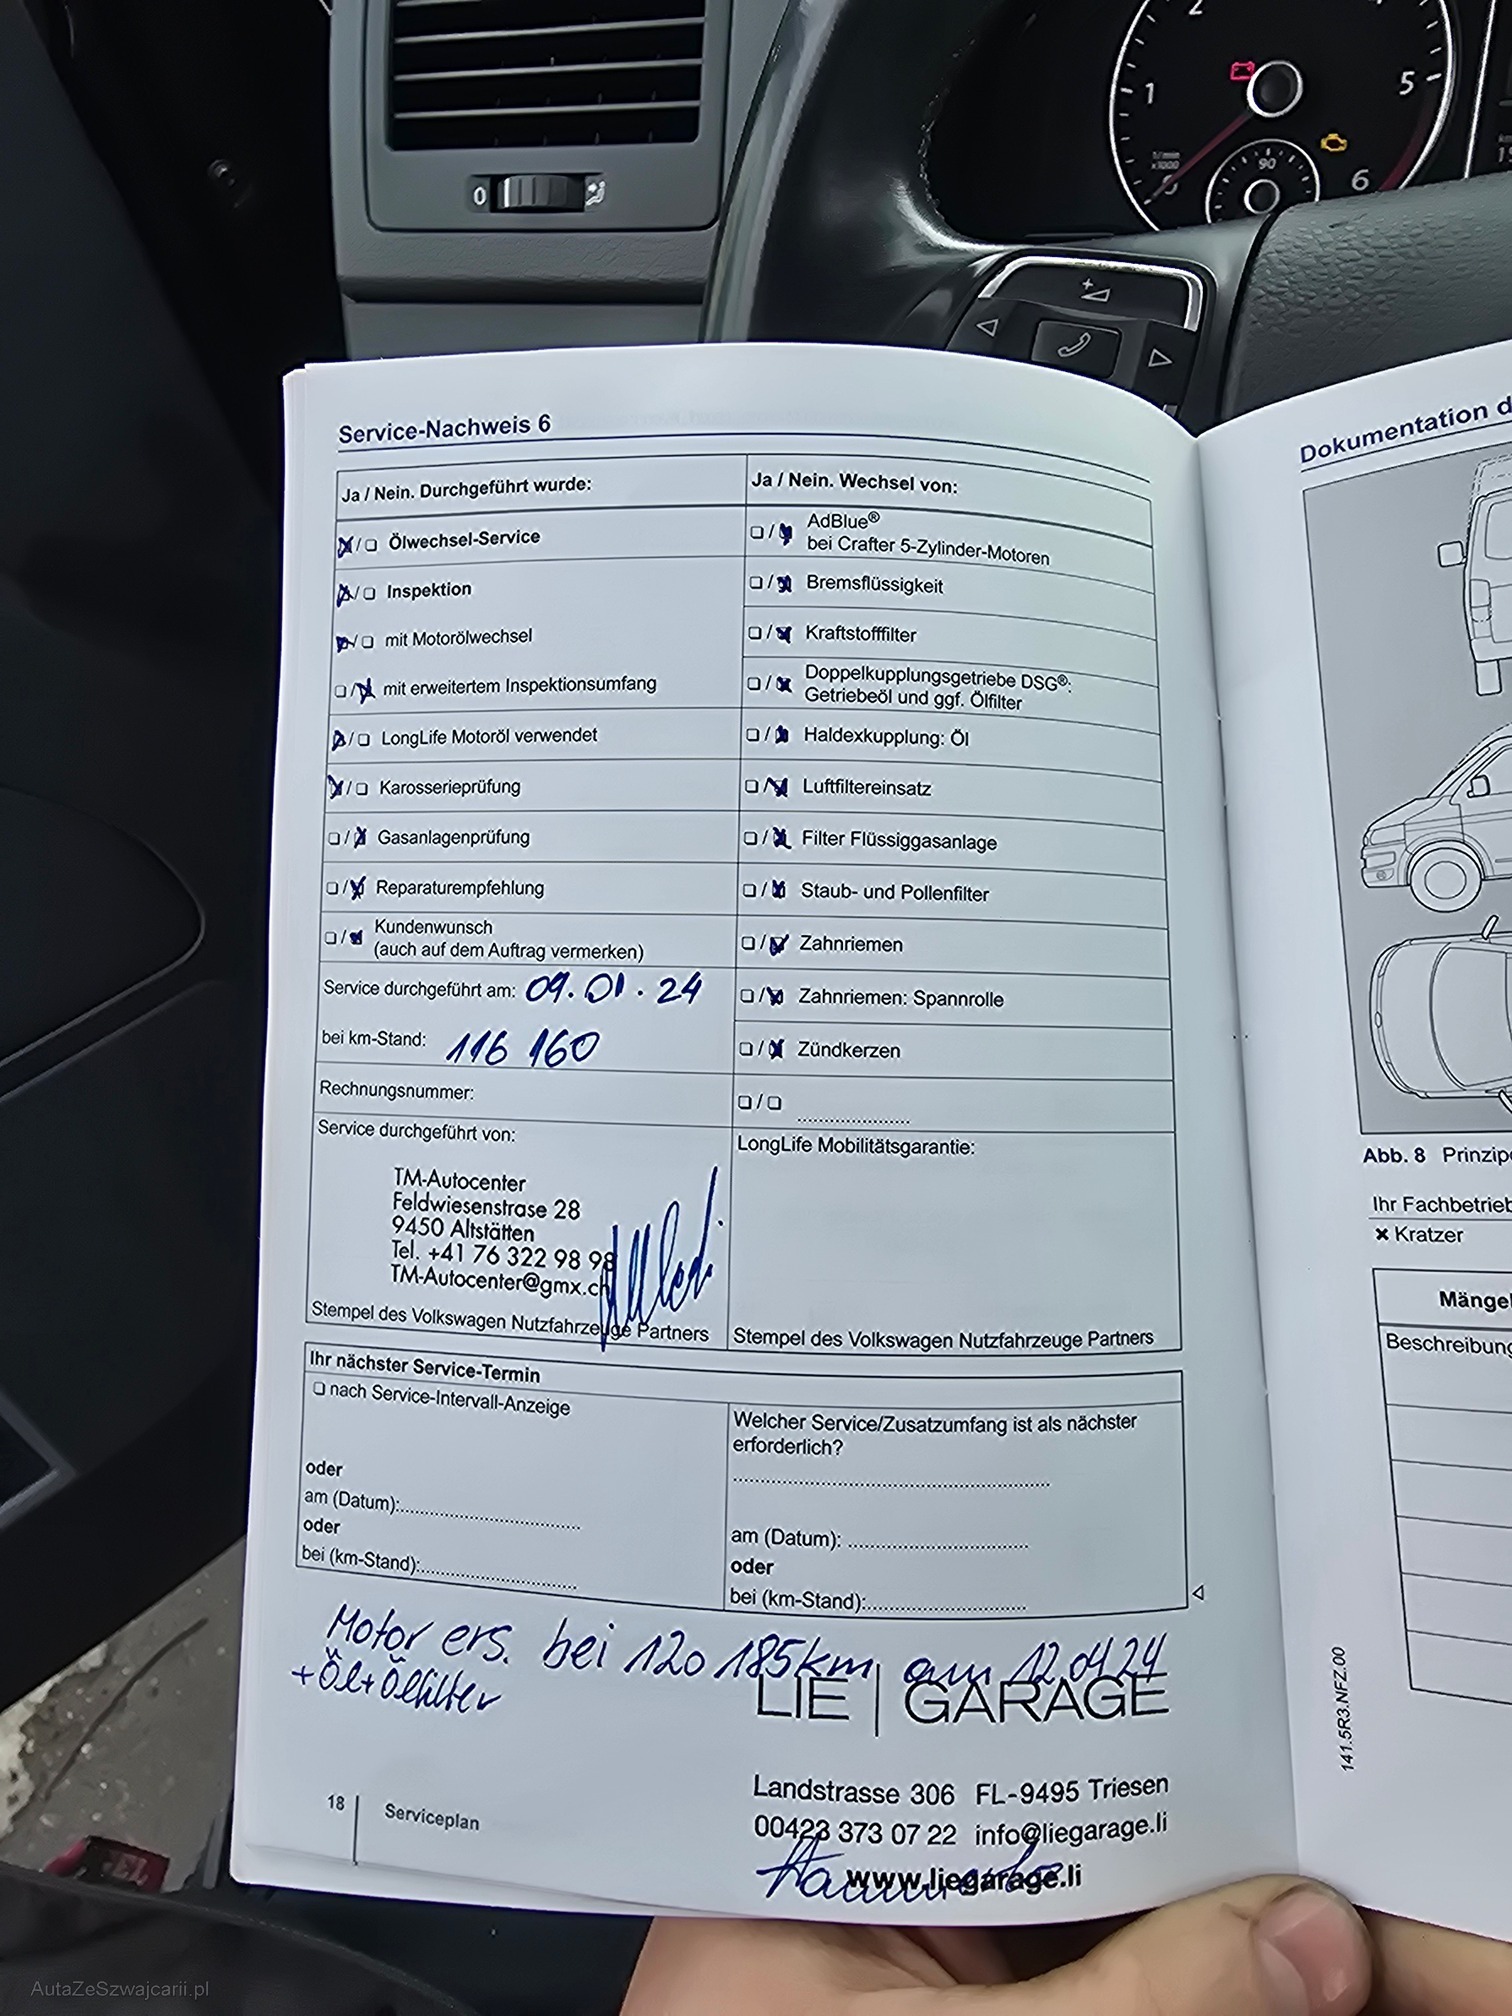 2
1
5
6
1/min
x1000
90
0
Service-Nachweis 6
Ja / Nein. Durchgeführt wurde:
Ölwechsel-Service
Inspektion
mit Motorölwechsel
mit erweitertem Inspektionsumfang
LongLife Motoröl verwendet
Karosserieprüfung
Gasanlagenprüfung
Reparaturempfehlung
Kundenwunsch
(auch auf dem Auftrag vermerken)
Service durchgeführt am: 09.01.24
bei km-Stand: 116 160
Rechnungsnummer:
Service durchgeführt von:
TM-Autocenter
Feldwiesenstrase 28
9450 Altstätten
Tel. +41 76 322 98 98
TM-Autocenter@gmx.ch
Stempel des Volkswagen Nutzfahrzeuge Partners
Ja / Nein. Wechsel von:
AdBlue®
bei Crafter 5-Zylinder-Motoren
Bremsflüssigkeit
Kraftstofffilter
Doppelkupplungsgetriebe DSG®:
Getriebeöl und ggf. Ölfilter
Haldexkupplung: Öl
Luftfiltereinsatz
Filter Flüssiggasanlage
Staub- und Pollenfilter
Zahnriemen
Zahnriemen: Spannrolle
Zündkerzen
LongLife Mobilitätsgarantie:
Stempel des Volkswagen Nutzfahrzeuge Partners
Ihr nächster Service-Termin
nach Service-Intervall-Anzeige
oder
am (Datum):
oder
bei (km-Stand):
Welcher Service/Zusatzumfang ist als nächster
erforderlich?
am (Datum):
oder
bei (km-Stand):
Motor ers. bei 120 185km am 12.04.24
+Öl+Ölfilter
LIE | GARAGE
Landstrasse 306 FL-9495 Triesen
00423 373 07 22 info@liegarage.li
www.liegarage.li
18 Serviceplan
Dokumentation d
Abb. 8 Prinzip
Ihr Fachbetrieb
× Kratzer
Mängel
Beschreibung
141.5R3.NFZ.00
AutaZeSzwajcarii.pl